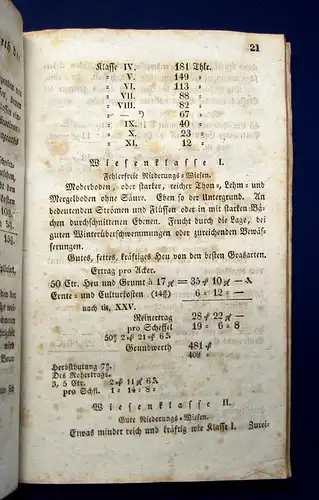 21
Klasse IV. 181 Thlr.
= V. 149 =
= VI. 113 =
= VII. 88 =
= VIII. 82 =
= — *) 67 =
= IX. 40 =
= X. 23 =
= XI. 12 =
Wiesenklasse I.
Fehlerfreie Niederungs-Wiesen.
Moderboden, oder starker, reicher Thon-, Lehm- und
Mergelboden ohne Säure. Eben so der Untergrund. An
bedeutenden Strömen und Flüssen oder in mit starken Bä-
chen durchschnittenen Ebenen. Feucht durch die Lage, bei
guten Winterüberschwemmungen oder zureichenden Bewäs-
serungen.
Gutes, fettes, kräftiges Heu von den besten Grasarten.
Ertrag pro Acker.
50 Ctr. Heu und Grumt à 17 = 35 10 —
Ernte- und Culturkosten 6 = 12 = —
nach tit. XXV.
Reinertrag 28 22 —
pro Scheffel 19 = 6 = 8
2 21 6
Grundwerth 481
409 =
Herbsthutung
Des Rohertrags.
3, 5 Ctr. 2 11 6
pro Schfl. 1 = 14 = 8 =
Wiesenklasse II.
Gute Niederungs-Wiesen.
Etwas minder reich und kräftig wie Klasse I. Zurei-